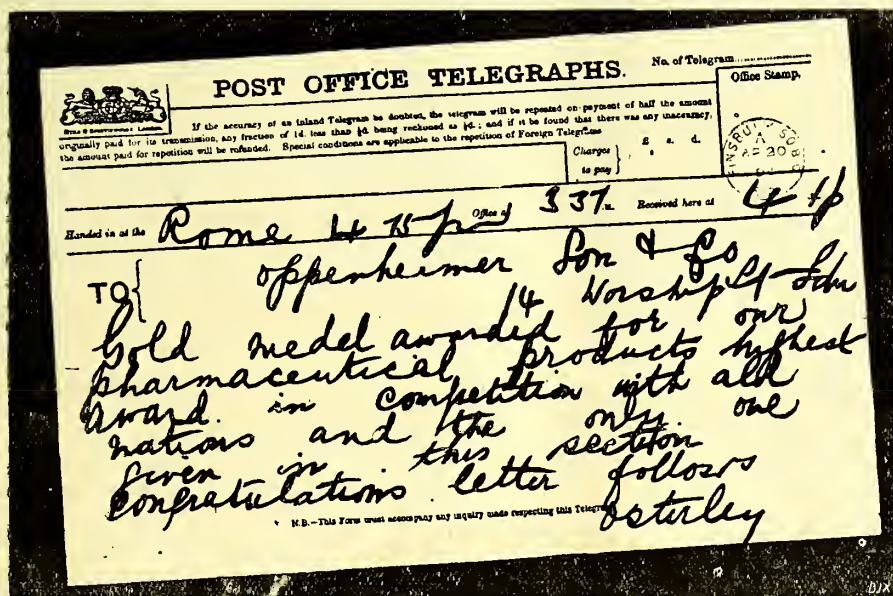 POST OFFICE TELEGRAPHS.
No. of Telegram
Office Stamp.
If the accuracy of an Inland Telegram be doubted, the telegram will be repeated on payment of half the amount
originally paid for its transmission, any fraction of 1d. less than ½d. being reckoned as ½d.; and if it be found that there was any inaccuracy,
the amount paid for repetition will be refunded. Special conditions are applicable to the repetition of Foreign Telegrams
Charges
to pay
£ s. d.
AP 20
Handed in at the Rome Office at 3 37 Received here at 4
TO
Oppenheimer Son & Co
14 Worship St
Gold medel awarded for our
pharmaceutical products highest
award in competition with all
nations and the only one
given in this section
congratulations letter follows
Osterley
N.B.—This Form must accompany any inquiry made respecting this Telegram